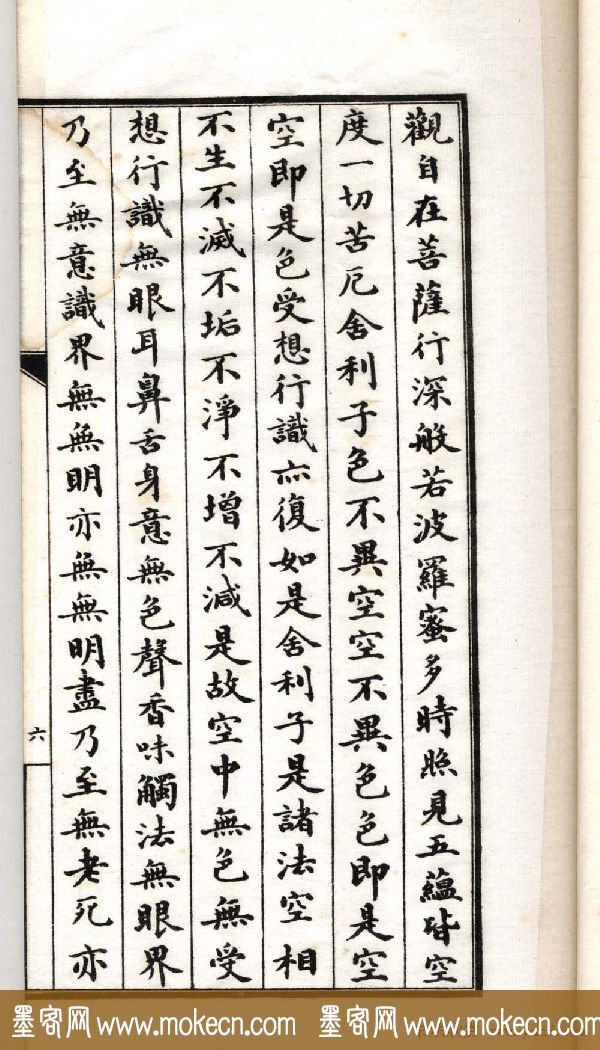 觀自在菩薩行深般若波羅蜜多時照見五蘊皆空
度一切苦厄舍利子色不異空空不異色色即是空
空即是色受想行識亦復如是舍利子是諸法空相
不生不滅不垢不淨不增不減是故空中無色無受
想行識無眼耳鼻舌身意無色聲香味觸法無眼界
乃至無意識界無無明亦無無明盡乃至無老死亦
六
墨客网 www.mokecn.com 墨客网 www.mokecn.com